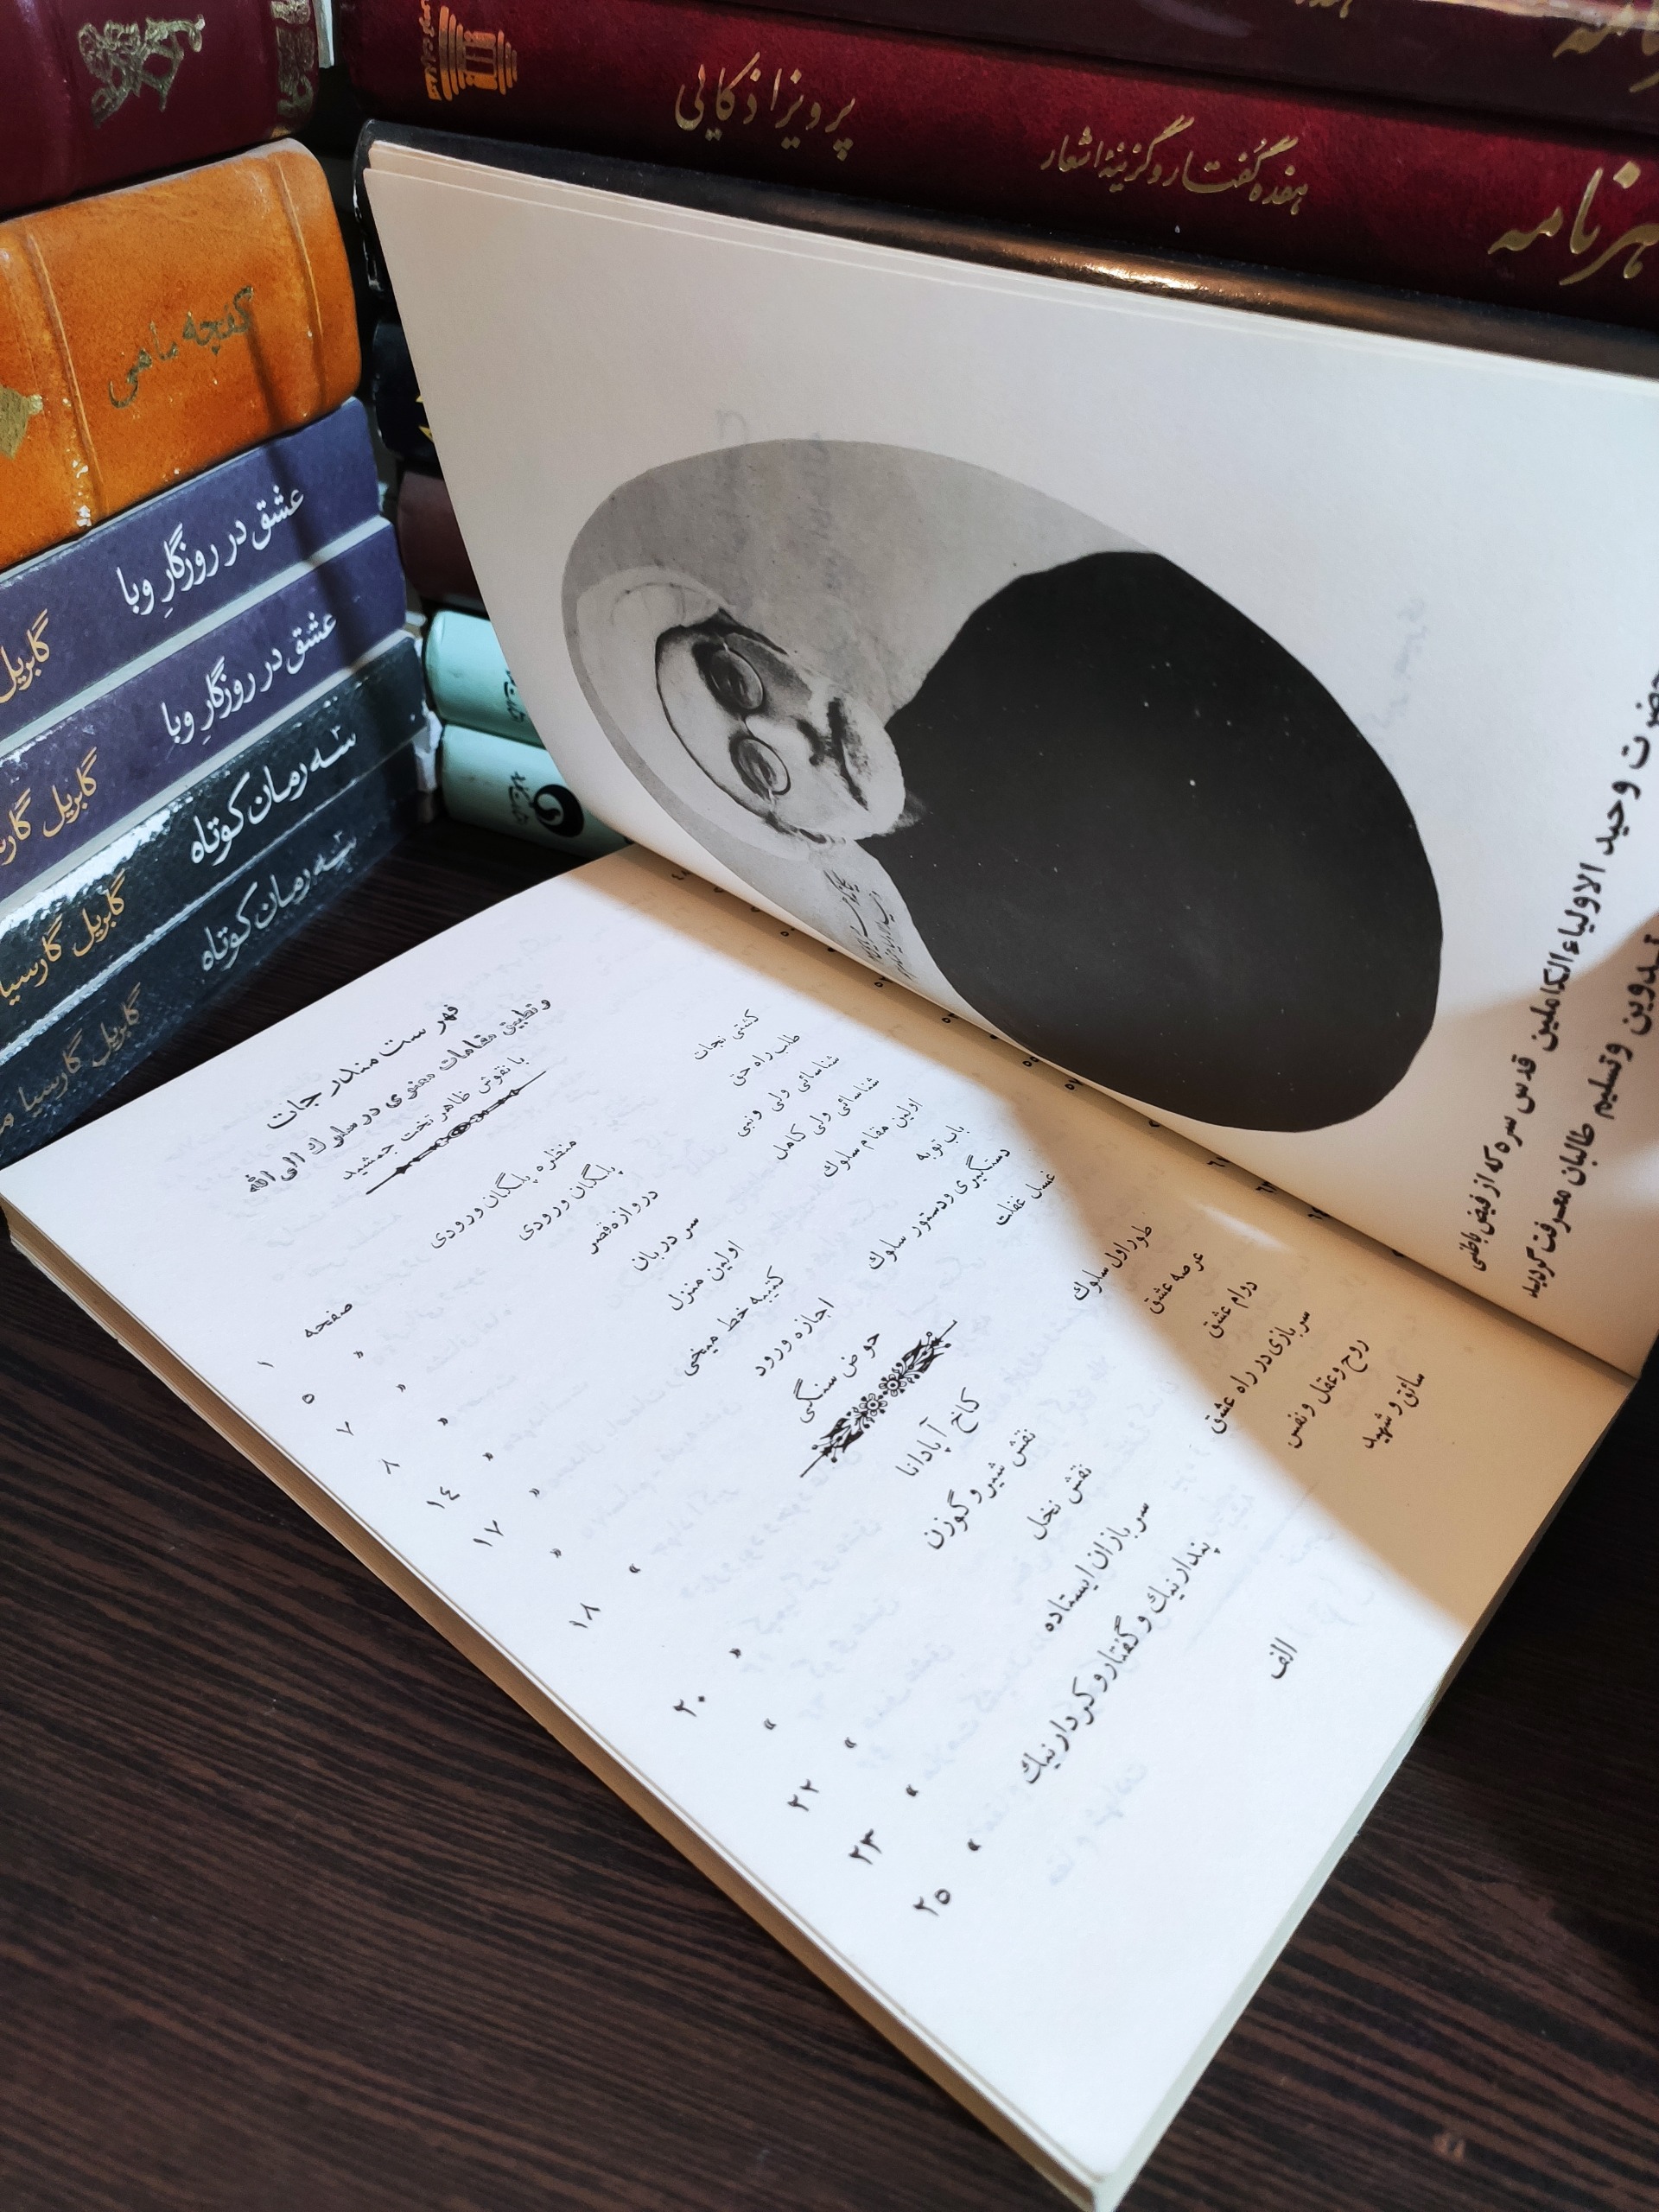 پرویز اذکایی
هفده گفتار و گزینهٔ اشعار
هنرنامه
کفچه ماهی
عشق در روزگارِ وبا
گابریل
عشق در روزگارِ وبا
گابریل
سه رمان کوتاه
گابریل گارسیا
سه رمان کوتاه
گابریل گارسیا
حضرت وحید الاولیاء الکاملین قدس سره که از فیض باطنی
تدوین و تسلیم طالبان معرفت گردید
فهرست مندرجات
و تطبیق مقامات معنوی در سلوك الی الله
با نقوش ظاهر تخت جمشید
صفحه
منظره پلکان ورودی کشتی نجات ۱
پلکان ورودی طلب راه حق » ۵
دروازه قصر شناسائی ولی و نبی » ۷
سر دربان شناسائی ولی کامل » ۸
اولین منزل اولین مقام سلوك » ۱٤
کتیبه خط میخی باب توبه » ۱۷
اجازه ورود دستگیری و دستور سلوك »
حوض سنگی غسل غفلت » ۱۸
کاخ آپادانا طور اول سلوك » ۲۰
نقش شیر و گوزن عرصه عشق »
نقش نخل دوام عشق » ۲۲
سربازان ایستاده سربازی در راه عشق » ۲۳
پندار نیك و گفتار و کردار نیك روح و عقل و نفس » ۲۵
سائق و شهید
الف